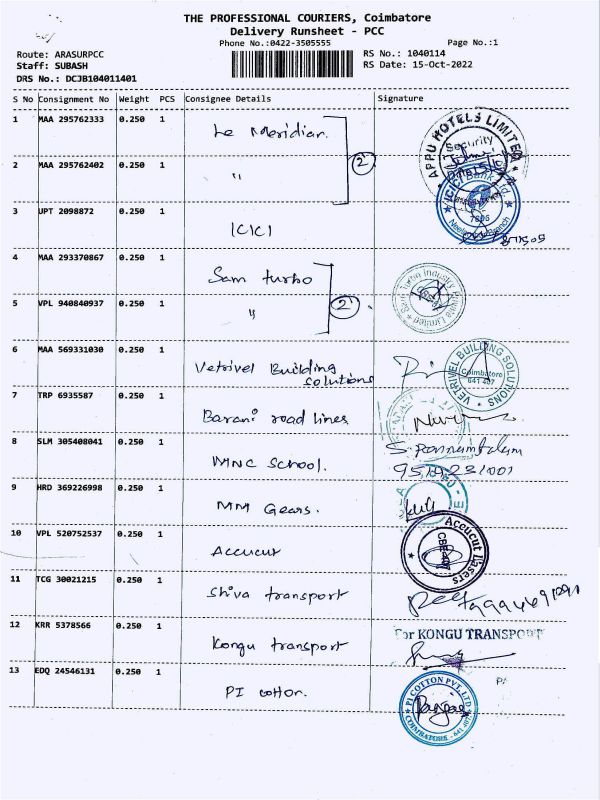 THE PROFESSIONAL COURIERS, Coimbatore
Delivery Runsheet - PCC
Phone No.:0422-3505555
Page No.:1
Route: ARASURPCC
RS No.: 1040114
Staff: SUBASH
RS Date: 15-Oct-2022
DRS No.: DCJB104011401
S No Consignment No Weight PCS Consignee Details Signature
1 MAA 295762333 0.250 1 Le Meridian. 2
APPU HOTELS LIMITED
Security
2 MAA 295762402 0.250 1 "
ICICI Bank Ltd
3 UPT 2098872 0.250 1 ICICI
4 MAA 293370867 0.250 1 Sam turbo 2
5 VPL 940840937 0.250 1 "
6 MAA 569331030 0.250 1 Vetrivel Building
solutions
VETRIVEL BUILDING SOLUTIONS
Coimbatore
641 407
7 TRP 6935587 0.250 1 Barani road lines
8 SLM 305408041 0.250 1 MNC School.
9 HRD 369226998 0.250 1 MM Gears.
10 VPL 520752537 0.250 1 Accucut
Accucut Lasers
CBE
11 TCG 30021215 0.250 1 Shiva transport
12 KRR 5378566 0.250 1 Kongu transport
For KONGU TRANSPORT
13 EDQ 24546131 0.250 1 PI cotton.
PI COTTON PVT. LTD
COIMBATORE - 641 407